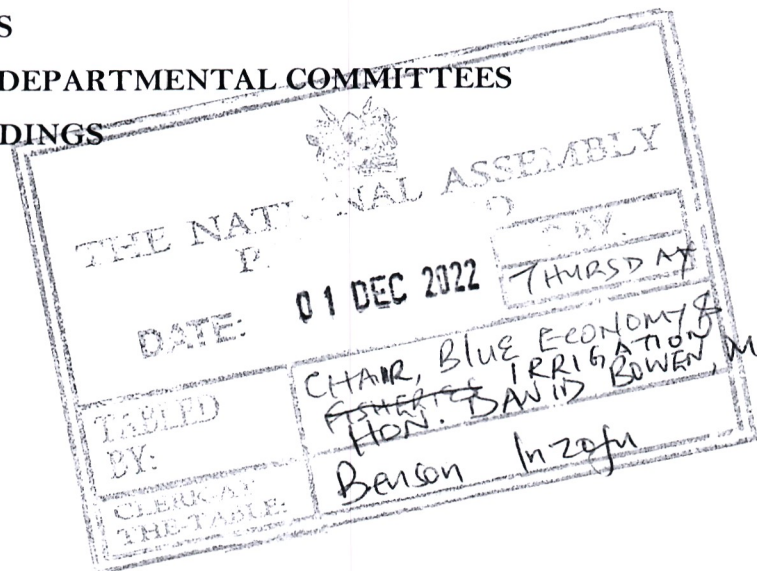 S
DEPARTMENTAL COMMITTEES
DINGS
THE NATI NAL ASSEMBLY
P
DAY.
DATE: 01 DEC 2022 THURSDAY
TABLED BY:
CHAIR, BLUE ECONOMY &
FISHERIES IRRIGATION
HON. DAVID BOWEN, M
CLERK-AT THE-TABLE:
Benson Inzofu